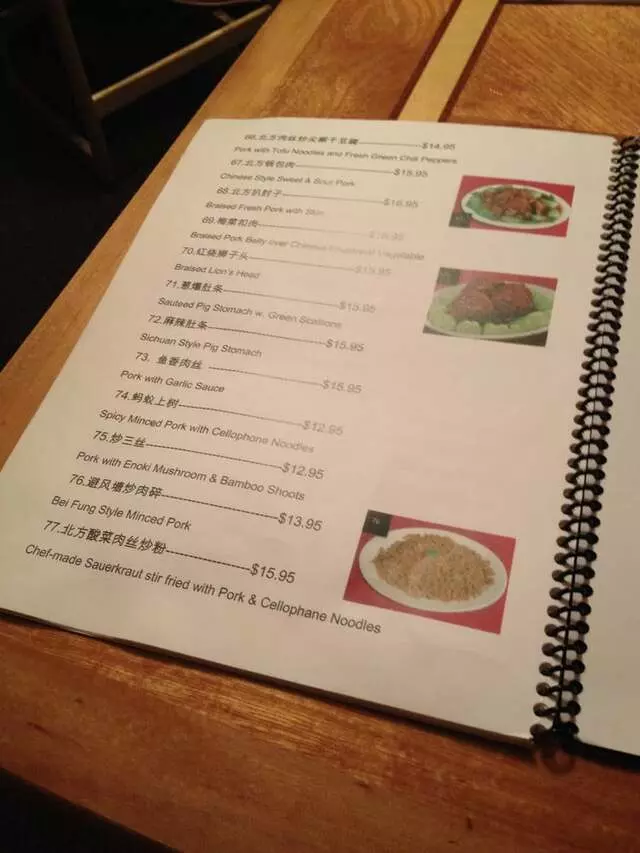 66.北方肉丝炒尖椒干豆腐--------------------$14.95
Pork with Tofu Noodles and Fresh Green Chili Peppers
67.北方锅包肉------------------------------$15.95
Chinese Style Sweet & Sour Pork
68.北方扒肘子------------------------------$16.95
Braised Fresh Pork with Skin
69.梅菜扣肉--------------------------------
Braised Pork Belly over Chinese Preserved Vegetable
70.红烧狮子头------------------------------$15.95
Braised Lion's Head
71.葱爆肚条--------------------------------$15.95
Sauteed Pig Stomach w. Green Scallions
72.麻辣肚条--------------------------------$15.95
Sichuan Style Pig Stomach
73. 鱼香肉丝 ------------------------------$15.95
Pork with Garlic Sauce
74.蚂蚁上树--------------------------------$12.95
Spicy Minced Pork with Cellophane Noodles
75.炒三丝----------------------------------$12.95
Pork with Enoki Mushroom & Bamboo Shoots
76.避风塘炒肉碎----------------------------$13.95
Bei Fung Style Minced Pork
77.北方酸菜肉丝炒粉------------------------$15.95
Chef-made Sauerkraut stir fried with Pork & Cellophane Noodles
76